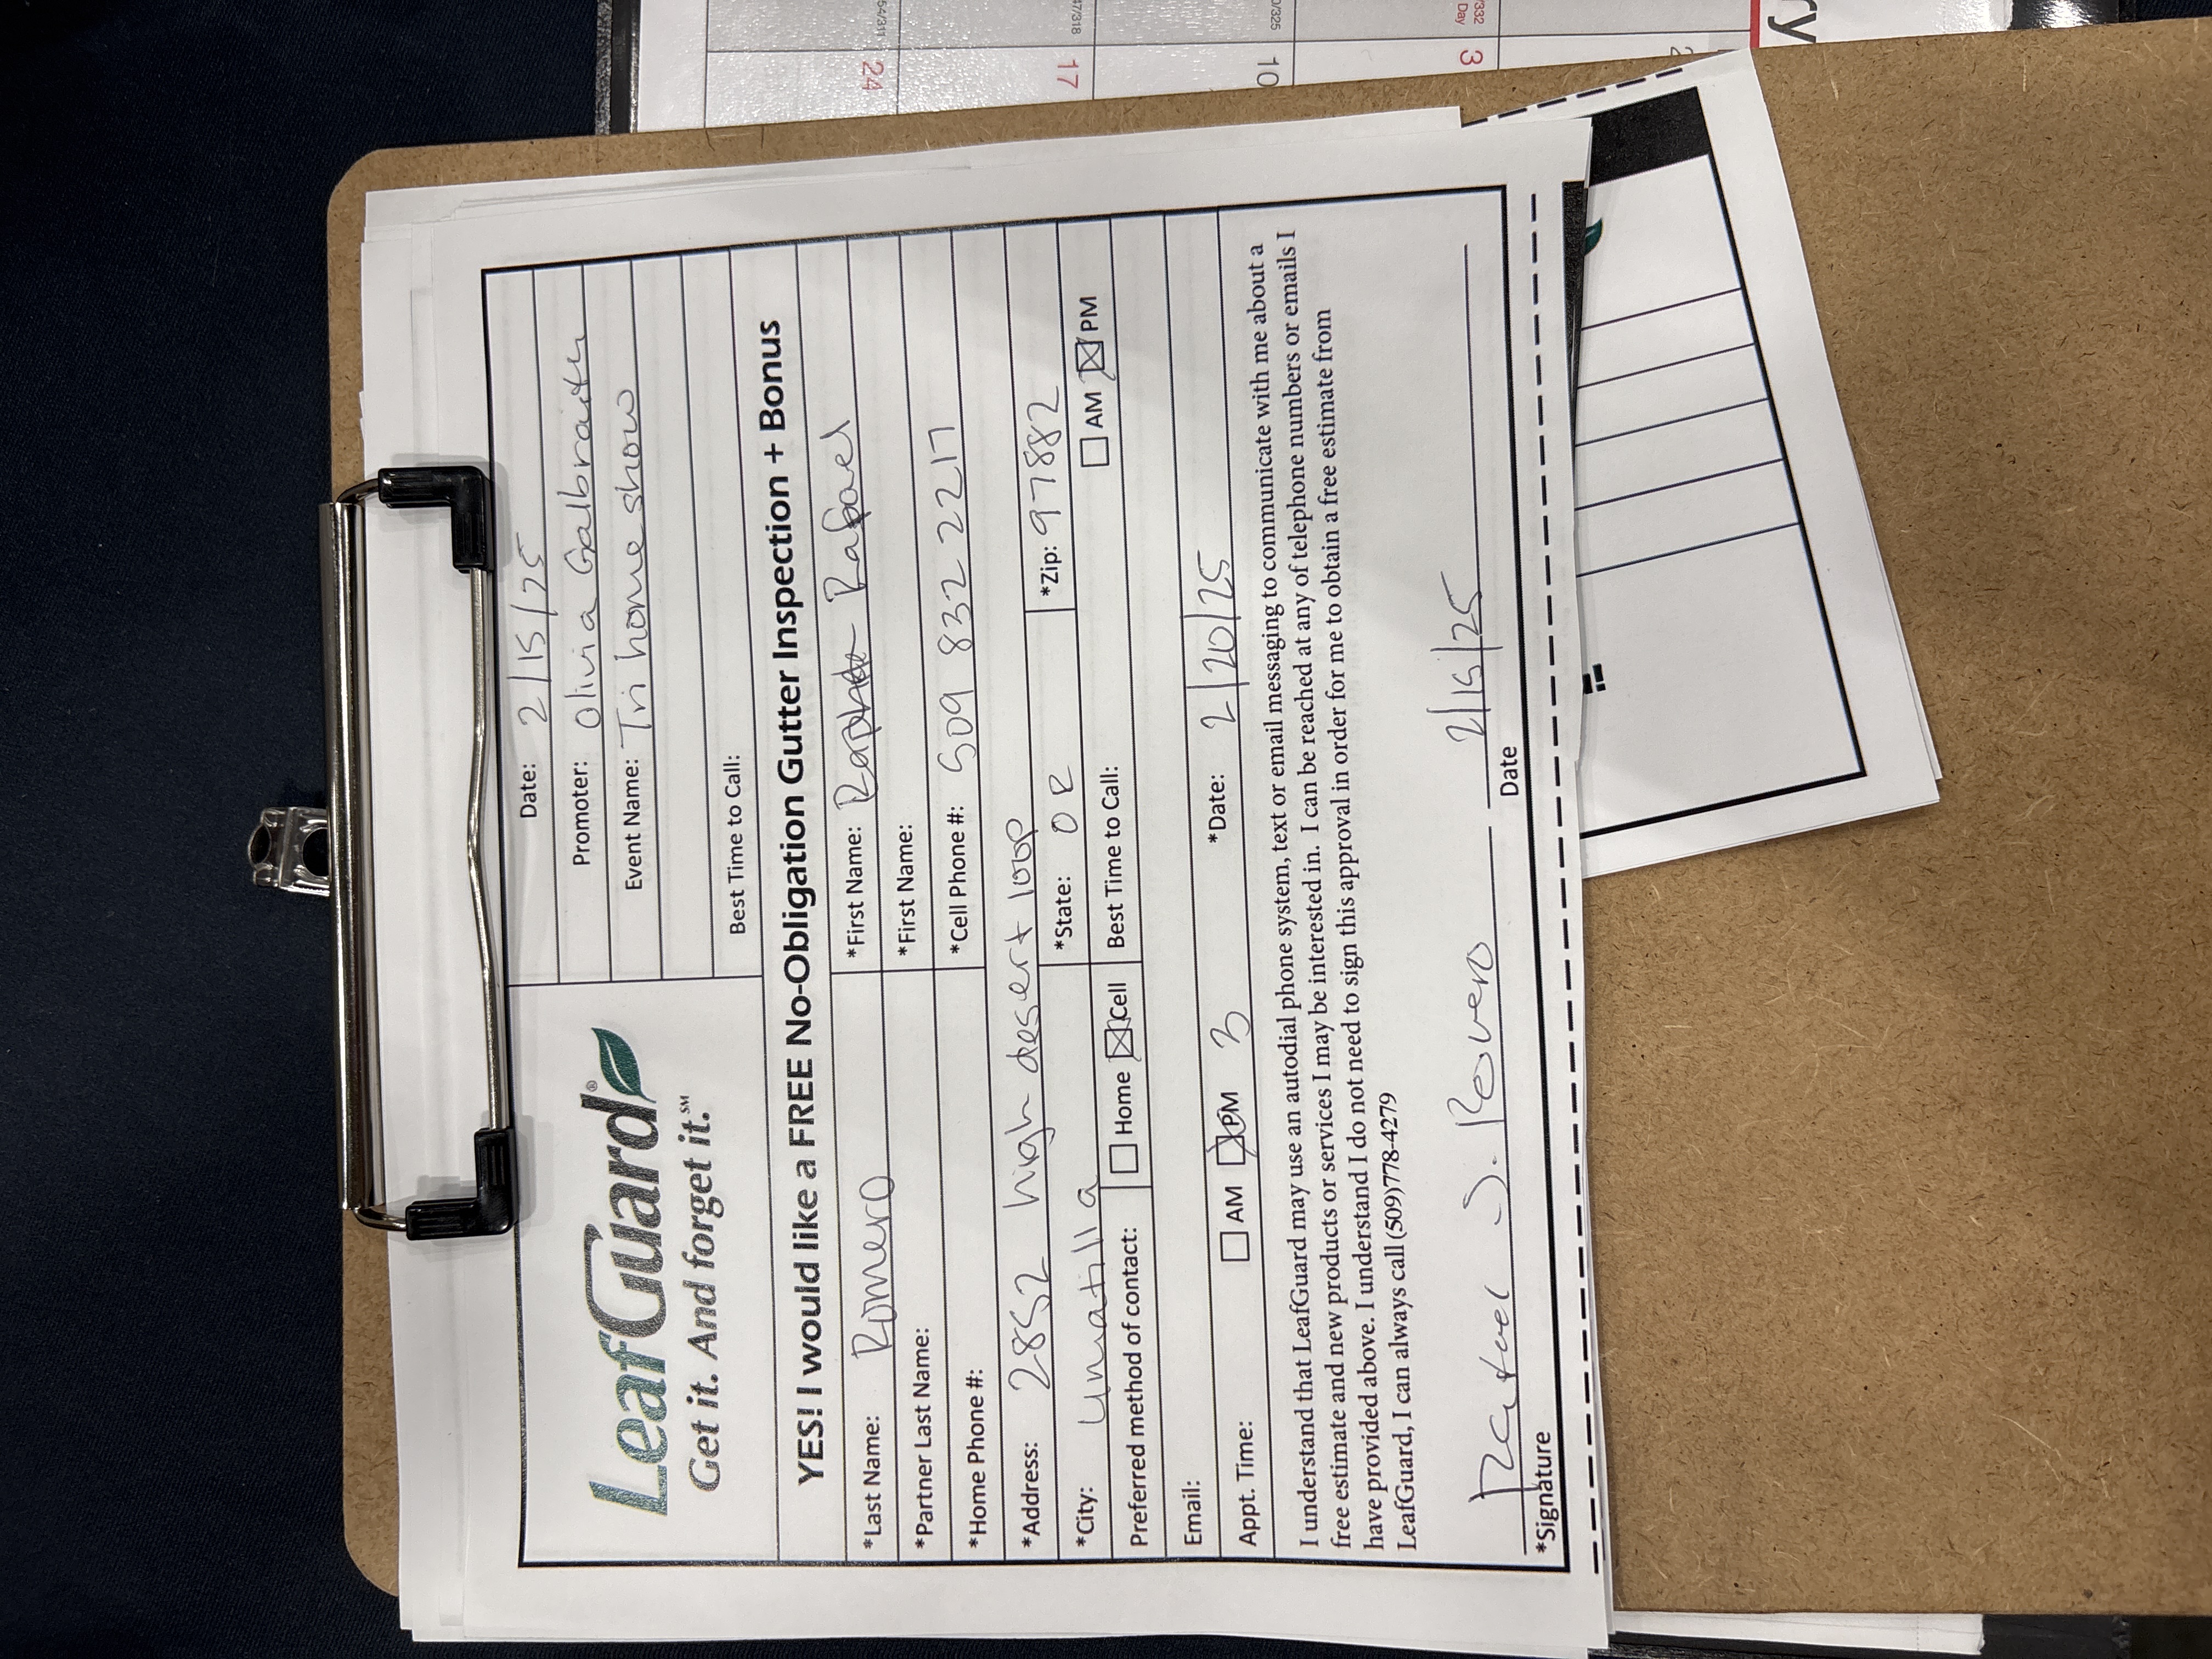 LeafGuard®
Get it. And forget it.℠
Date: 2/15/25
Promoter: Olivia Galbraith
Event Name: Tri home show
Best Time to Call:
YES! I would like a FREE No-Obligation Gutter Inspection + Bonus
*Last Name: Romero
*First Name: Rafael
*Partner Last Name:
*First Name:
*Home Phone #:
*Cell Phone #: 509 832 2217
*Address: 2852 high desert loop
*City: Umatilla
*State: OR
*Zip: 97882
Preferred method of contact: ☐ Home ☒ Cell
Best Time to Call: ☐ AM ☒ PM
Email:
Appt. Time: ☐ AM ☒ PM 3
*Date: 2/20/25
I understand that LeafGuard may use an autodial phone system, text or email messaging to communicate with me about a
free estimate and new products or services I may be interested in. I can be reached at any of telephone numbers or emails I
have provided above. I understand I do not need to sign this approval in order for me to obtain a free estimate from
LeafGuard, I can always call (509)778-4279
Rafael J. Romero
2/15/25
*Signature
Date
24
17
10
3